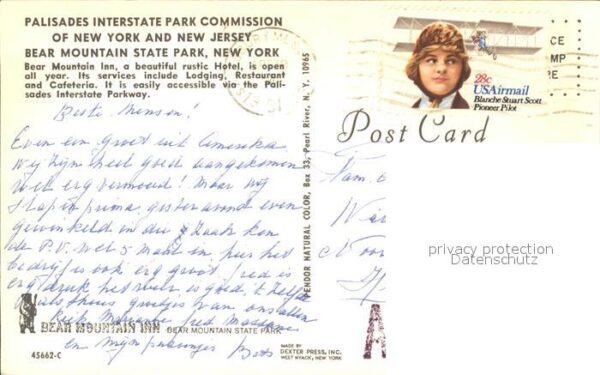 PALISADES INTERSTATE PARK COMMISSION
OF NEW YORK AND NEW JERSEY
BEAR MOUNTAIN STATE PARK, NEW YORK
Bear Mountain Inn, a beautiful rustic Hotel, is open
all year. Its services include Lodging, Restaurant
and Cafeteria. It is easily accessible via the Pali-
sades Interstate Parkway.
Beste Mensen!
Even een groet uit Amerika
Wij zijn heel goed aangekomen
wel erg vermoeid! Maar wij
slapen prima, gisteravond even
gewinkeld in die zaak kon
de P.V. wel 5 maal in, hier het
bedrijf is ook erg groot,
erg druk het weer is goed, 't zelfde
als thuis groetjes van ons allen
en mijn
BEAR MOUNTAIN INN BEAR MOUNTAIN STATE PARK
45662-C
MADE BY
DEXTER PRESS, INC.
WEST NYACK, NEW YORK
VENDOR NATURAL COLOR, Box 33, Pearl River, N. Y. 10965
28c
USAirmail
Blanche Stuart Scott
Pioneer Pilot
CE
MP
RE
Post Card
Fam.
privacy protection
Datenschutz
A